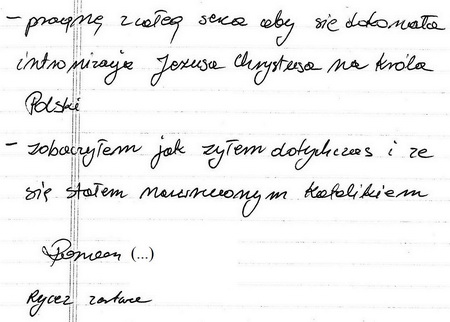 - pragnę z całego serca aby się dokonała
intronizacja Jezusa Chrystusa na króla
Polski
- zobaczyłem jak żyłem dotychczas i że
się stałem nawróconym katolikiem
Roman (...)
Rycerz